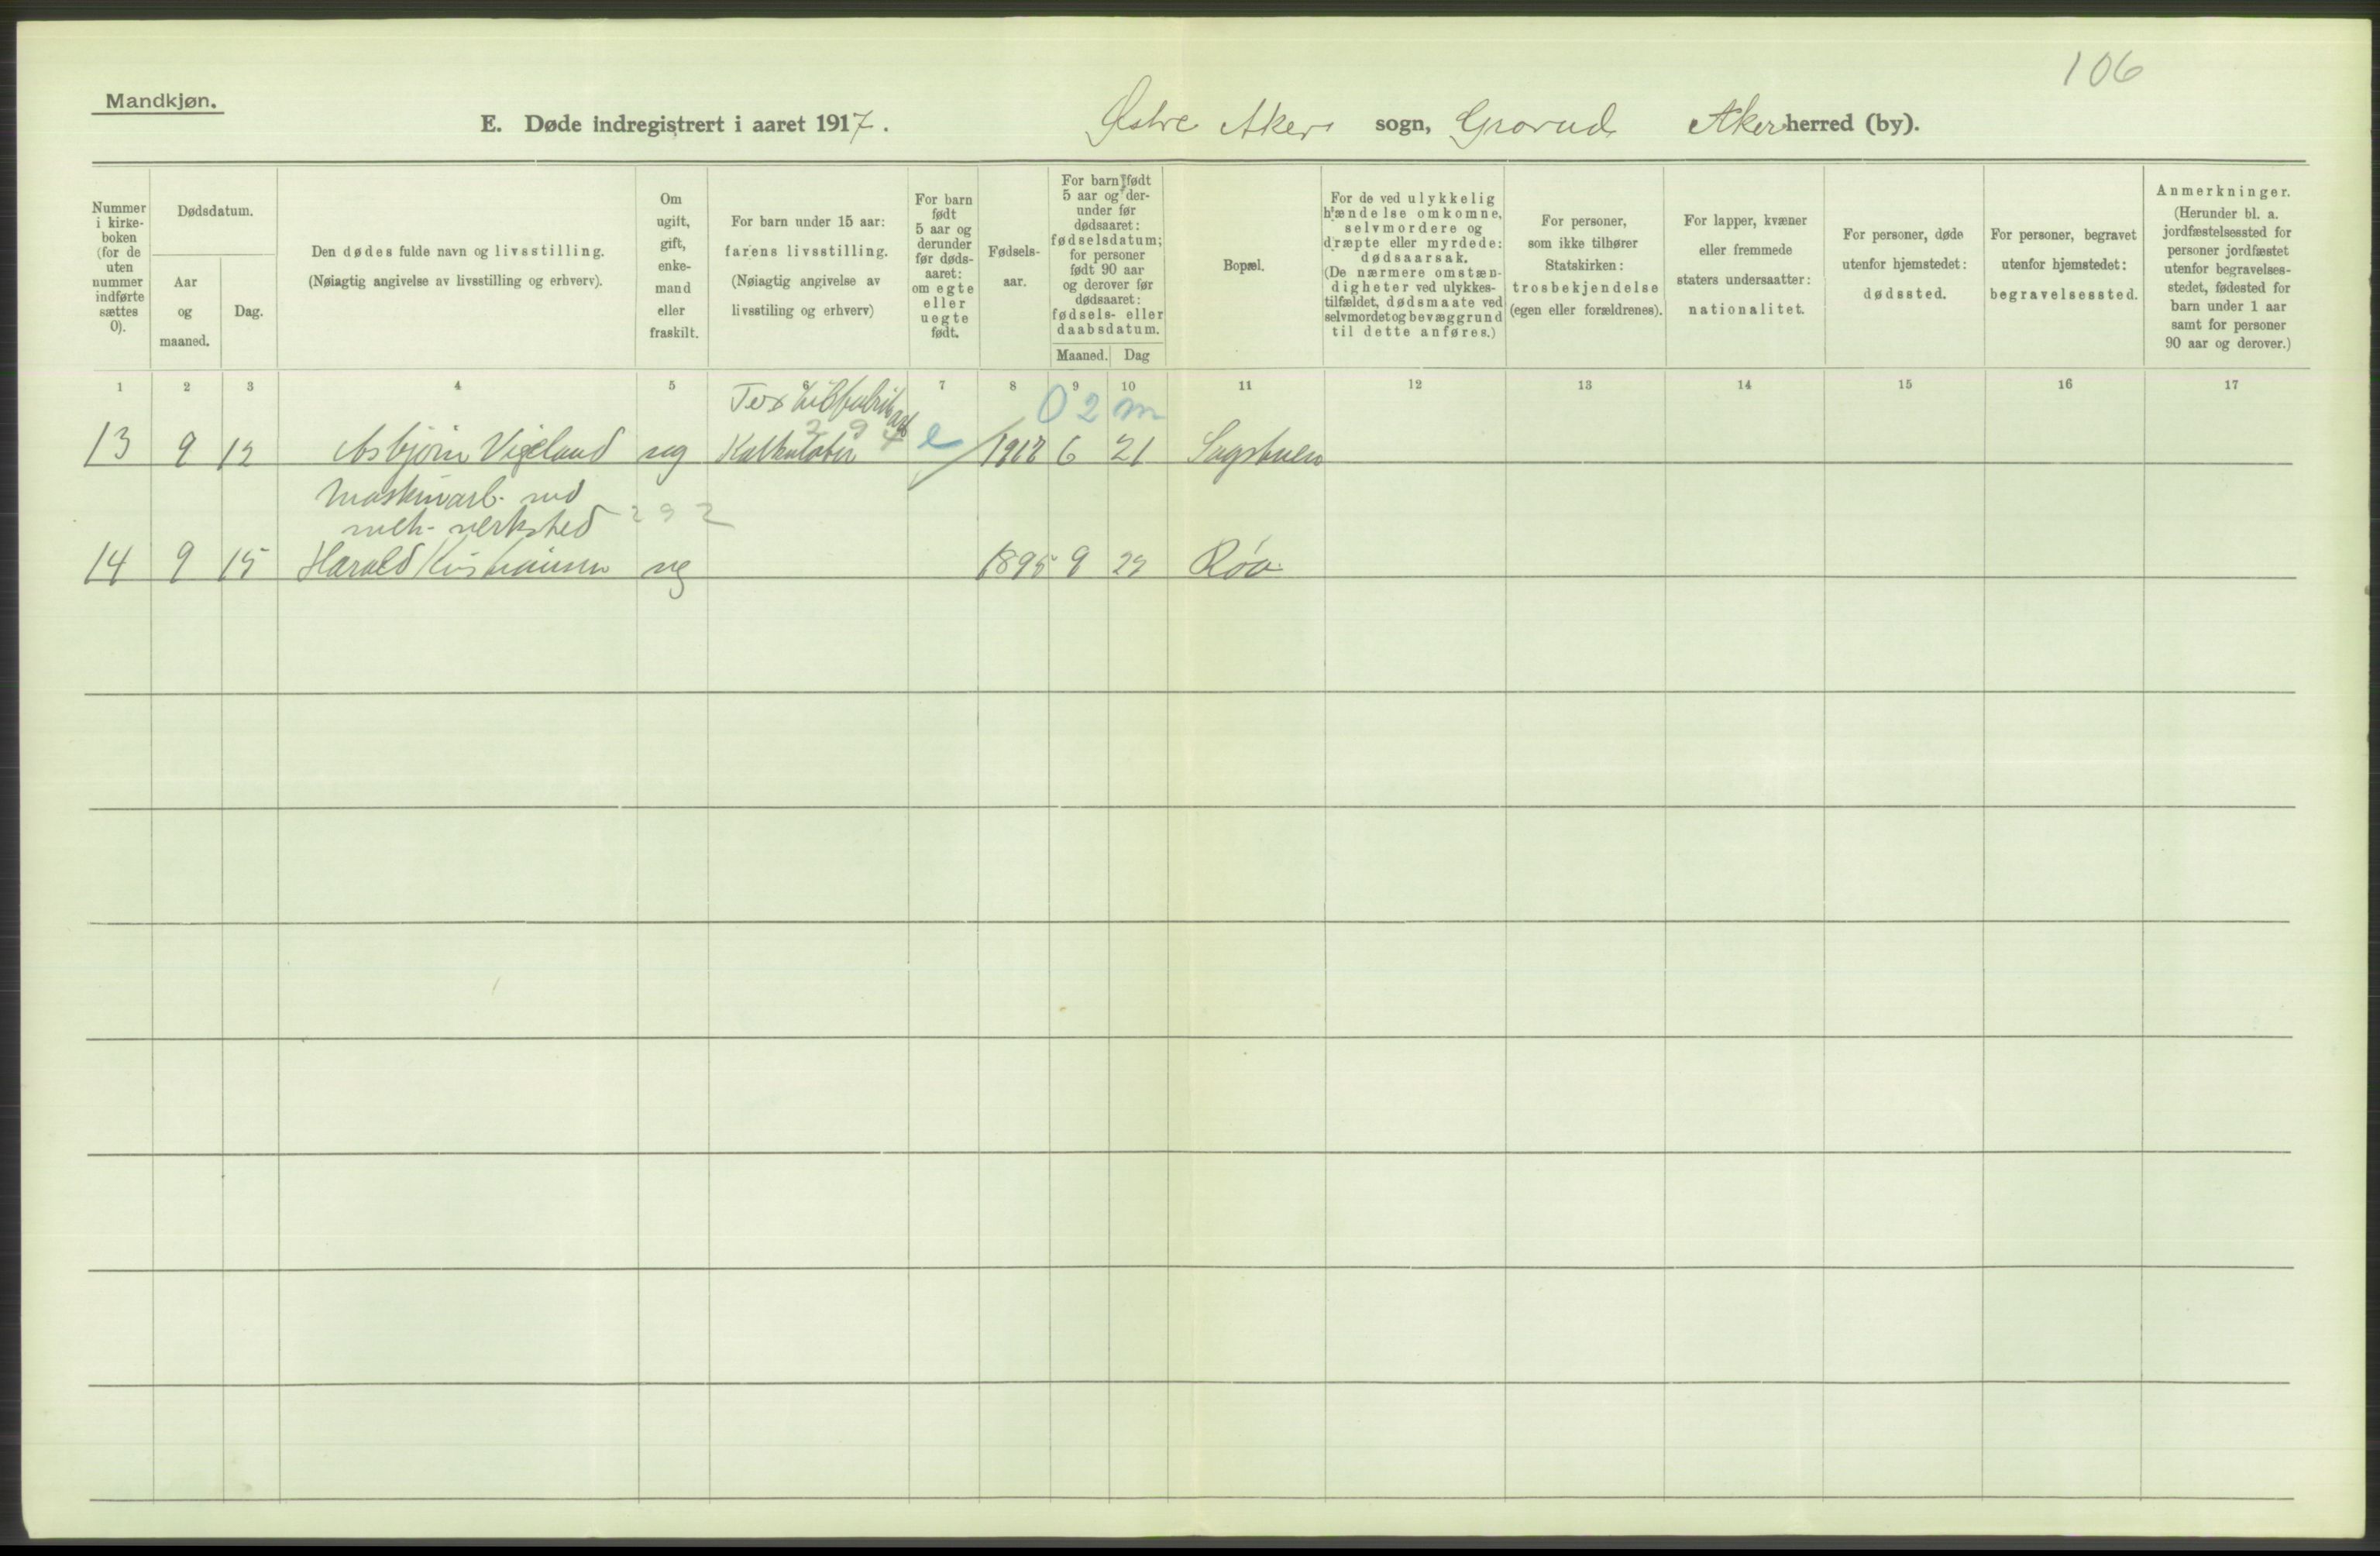 106
Mandkjøn.
E. Døde indregistrert i aaret 1917.
Østre Aker sogn, Grorud Aker herred (by).
Nummer i kirke-boken (for de uten nummer indførte sættes 0).
Dødsdatum.
Aar og maaned.
Dag.
Den dødes fulde navn og livsstilling.
(Nøiagtig angivelse av livsstilling og erhverv).
Om ugift, gift, enke-mand eller fraskilt.
For barn under 15 aar:
farens livsstilling.
(Nøiagtig angivelse av livsstiling og erhverv)
For barn født 5 aar og derunder før døds-aaret: om egte eller uegte født.
Fødsels-aar.
For barn født 5 aar og der-under før dødsaaret: fødselsdatum; for personer født 90 aar og derover før dødsaaret: fødsels- eller daabsdatum.
Maaned. Dag
Bopæl.
For de ved ulykkelig hændelse omkomne, selvmordere og dræpte eller myrdede: dødsaarsak.
(De nærmere omstæn-digheter ved ulykkes-tilfældet, dødsmaate ved selvmordet og bevæggrund til dette anføres.)
For personer, som ikke tilhører Statskirken: trosbekjendelse (egen eller forældrenes).
For lapper, kvæner eller fremmede staters undersaatter: nationalitet.
For personer, døde utenfor hjemstedet: dødssted.
For personer, begravet utenfor hjemstedet: begravelsessted.
Anmerkninger.
(Herunder bl. a. jordfæstelsessted for personer jordfæstet utenfor begravelses-stedet, fødested for barn under 1 aar samt for personer 90 aar og derover.)
1 2 3 4 5 6 7 8 9 10 11 12 13 14 15 16 17
Textilfabrik
0 2 m
13 9 12 Asbjørn Vigeland ug Kalkulatør 294 e 1917 6 21 Sagstuen
Maskinarb. ved
mek. verksted 292
14 9 15 Harald Kristiansen ug 1895 9 29 Røa